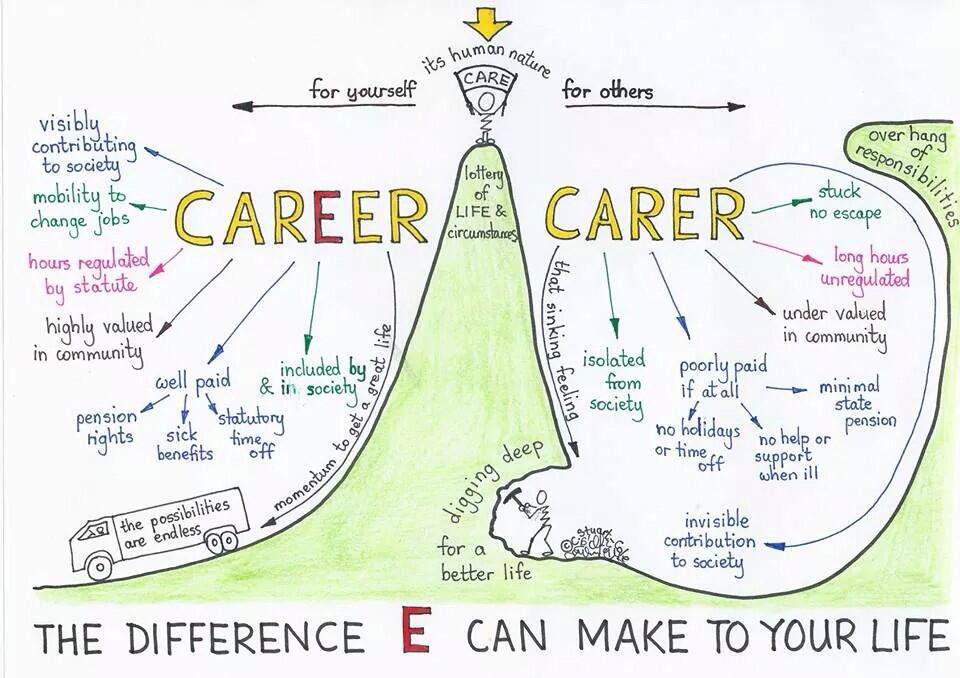 its human nature
CARE
for yourself
for others
visibly
contributing
to society
mobility to
change jobs
hours regulated
by statute
highly valued
in community
CAREER
well paid
pension
rights
sick
benefits
statutory
time
off
included by
& in society
momentum to get a great life
the possibilities
are endless
lottery
of
LIFE &
circumstances
CARER
over hang
of
responsibilities
stuck
no escape
long hours
unregulated
under valued
in community
that sinking feeling
isolated
from
society
poorly paid
if at all
minimal
state
pension
no holidays
or time
off
no help or
support
when ill
digging deep
for a
better life
invisible
contribution
to society
THE DIFFERENCE E CAN MAKE TO YOUR LIFE